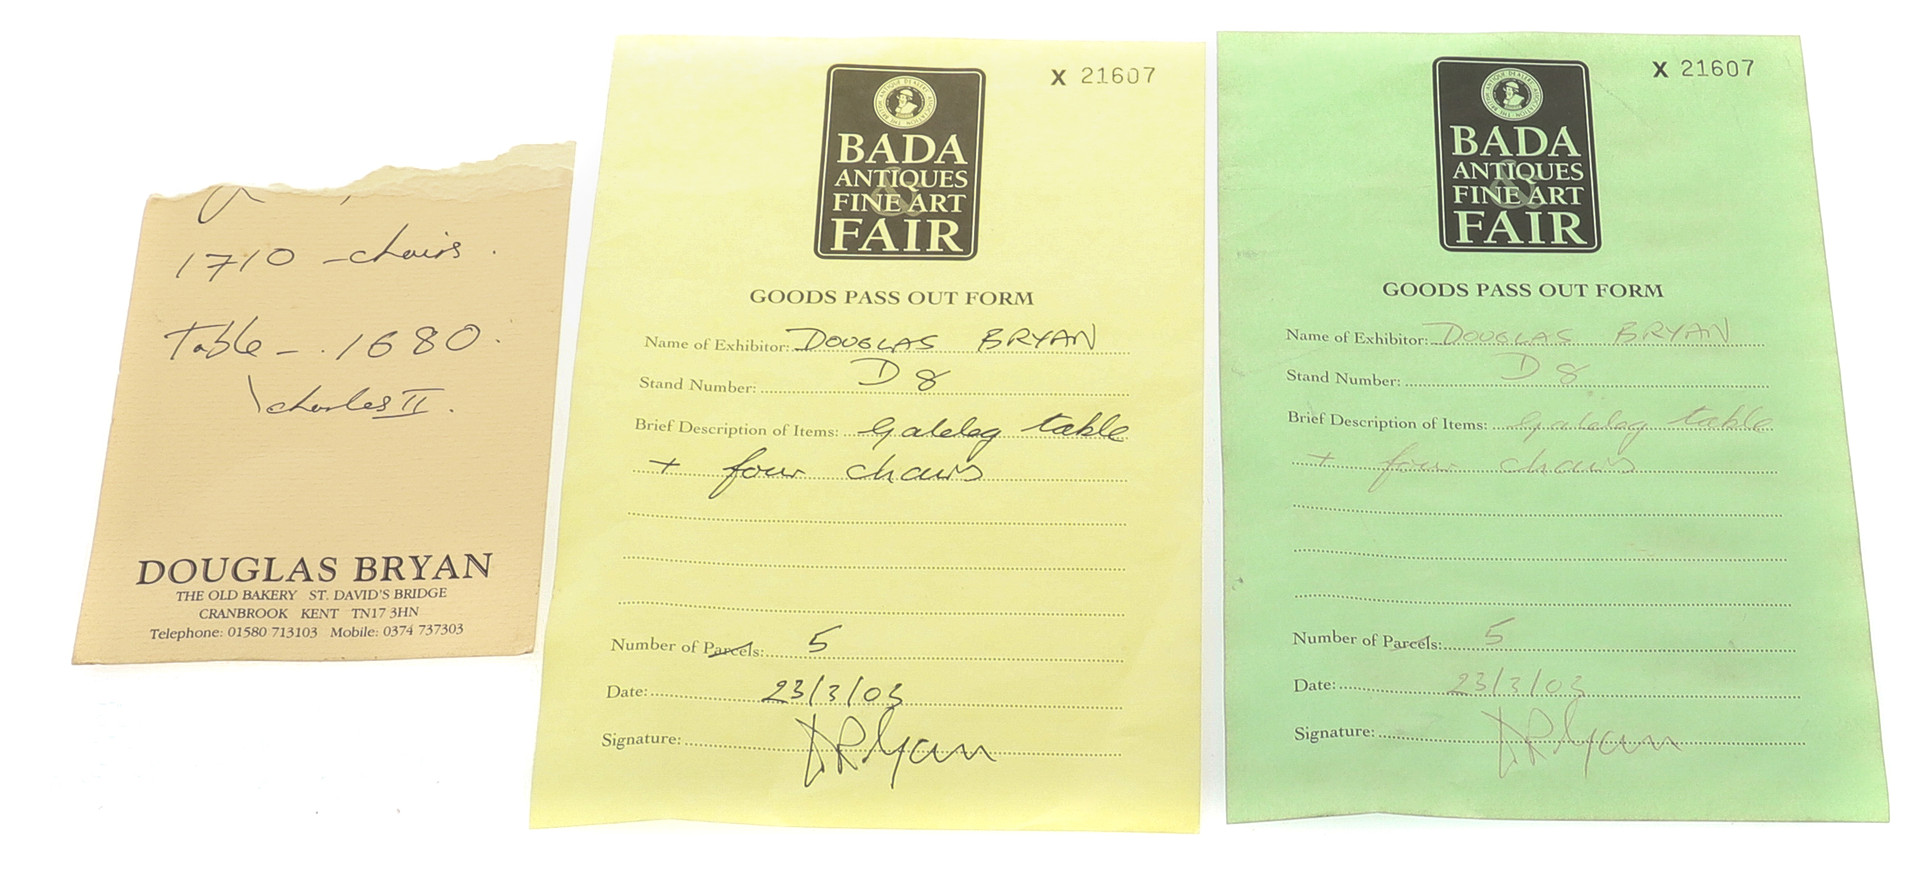 1710 - chairs.
Table - 1680.
Charles II.
DOUGLAS BRYAN
THE OLD BAKERY ST. DAVID'S BRIDGE
CRANBROOK KENT TN17 3HN
Telephone: 01580 713103 Mobile: 0374 737303
X 21607
THE BRITISH ANTIQUE DEALERS' ASSOCIATION
BADA
ANTIQUES
&
FINE ART
FAIR
GOODS PASS OUT FORM
Name of Exhibitor: DOUGLAS BRYAN
Stand Number: D 8
Brief Description of Items: Gateleg table
+ four chairs
Number of Parcels: 5
Date: 23/3/03
Signature: DRBryan
X 21607
THE BRITISH ANTIQUE DEALERS' ASSOCIATION
BADA
ANTIQUES
&
FINE ART
FAIR
GOODS PASS OUT FORM
Name of Exhibitor: DOUGLAS BRYAN
Stand Number: D 8
Brief Description of Items: Gateleg table
+ four chairs
Number of Parcels: 5
Date: 23/3/03
Signature: DRBryan